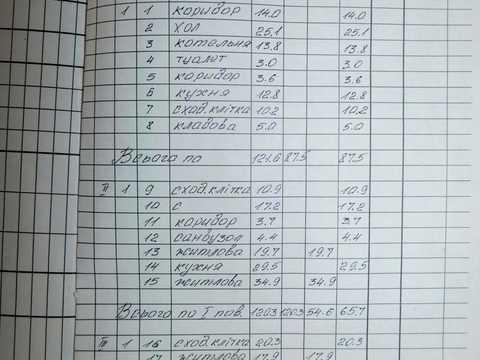 1 1 коридор 14.0 14.0
2 хол 25.1 25.1
3 котельня 13.8 13.8
4 туалет 3.0 3.0
5 коридор 3.6 3.6
6 кухня 12.8 12.8
7 сход.клітка 10,2 10,2
8 кладова 5.0 5.0
Всього по 121.6 87.5 87.5
II 1 9 сход.клітка 10.9 10.9
10 с 17.2 17.2
11 коридор 3.7 3.7
12 санвузол 4.4 4.4
13 житлова 19.7 19.7
14 кухня 29.5 29.5
15 житлова 34.9 34.9
Всього по I пов. 120.3 120.3 54.6 65.7
III 1 16 сход.клітка 20.3 20.3
17 житлова 17.9 17.9